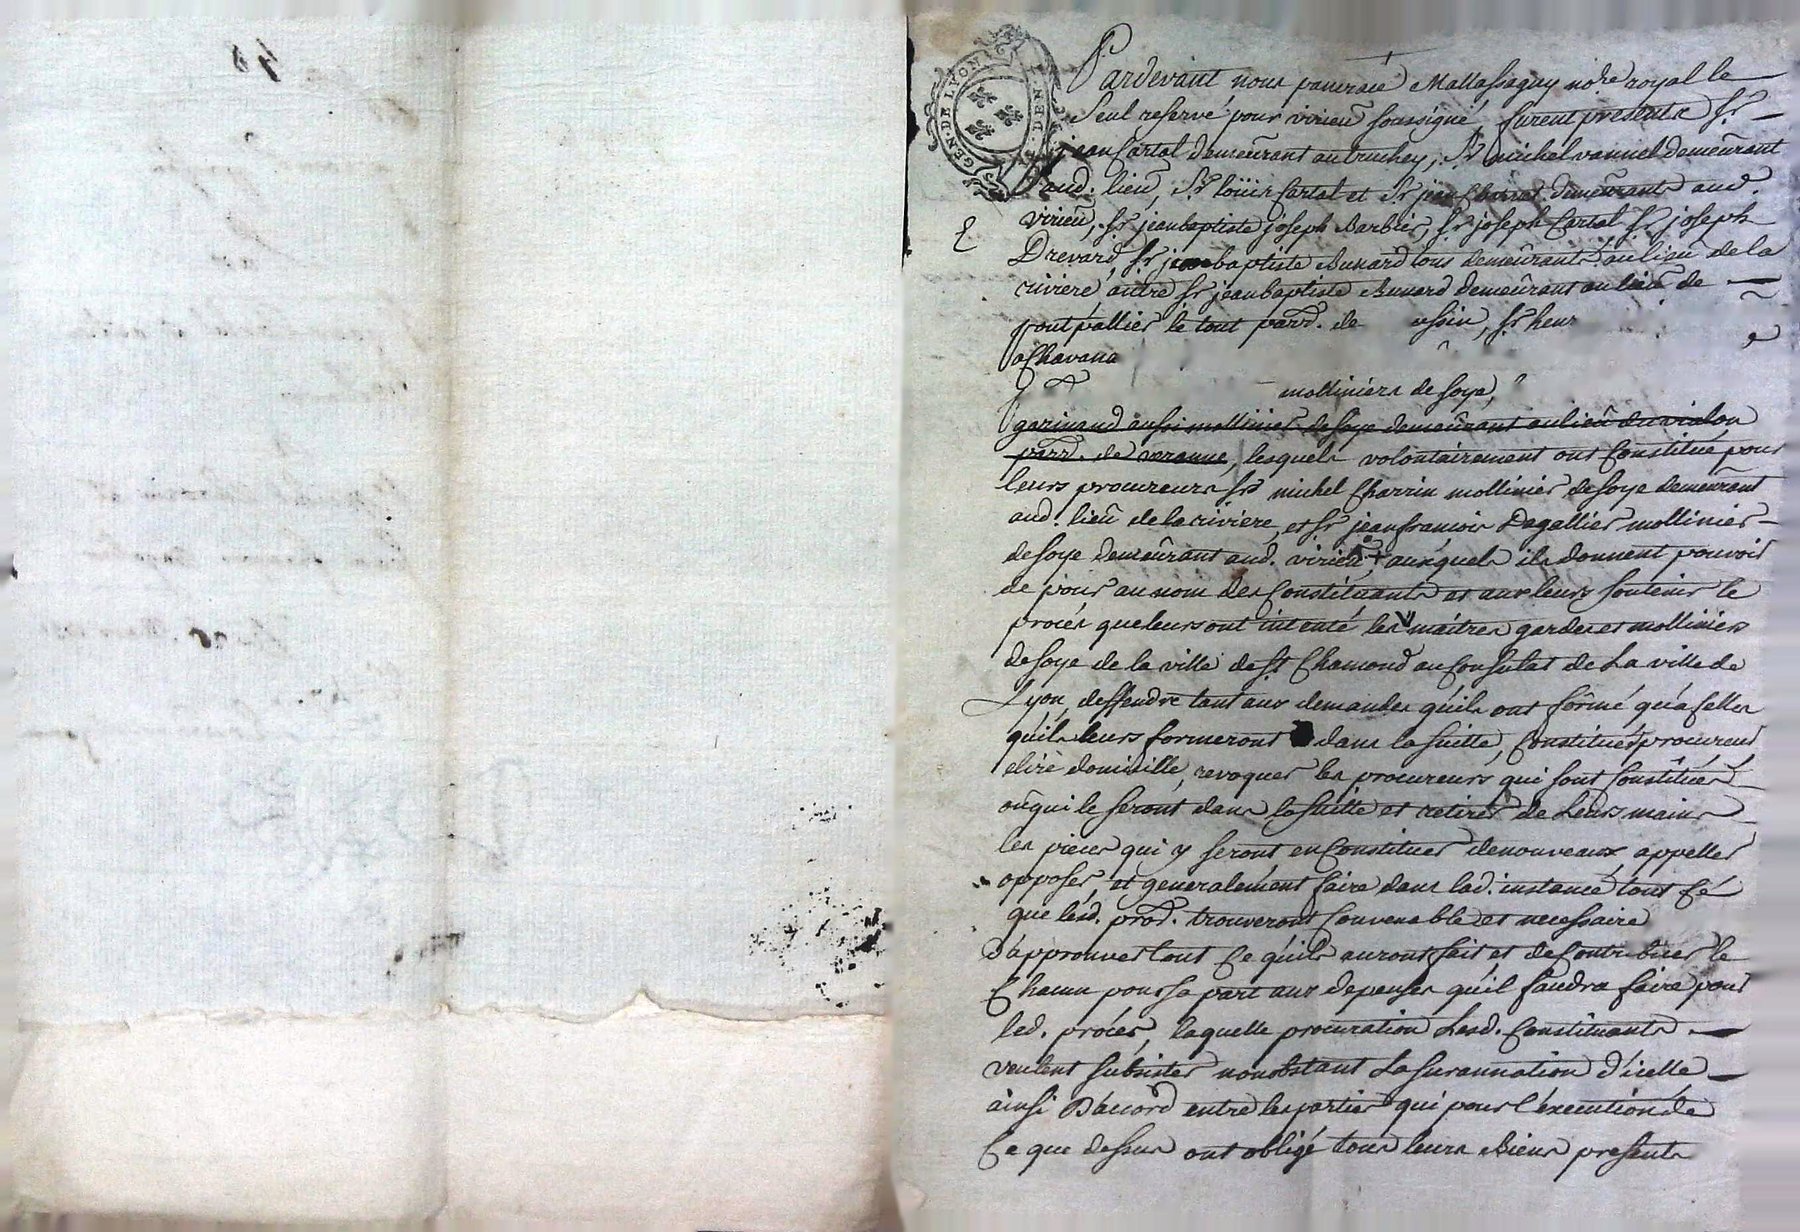 GEN. DE LYON
DEN
Pardevant nous pancrace Mallassagny no.re royal le
seul reservé pour virieu soussigné furent presents Sr
jean Cartal demeurant au truchey, Sr michel vannel demeurant
aud. lieu, Sr loüis Cartal et Sr jean demeurants aud.
virieu, Sr jean baptiste joseph Barbier, Sr joseph Cartal Sr joseph
Drevard, Sr jean baptiste Bunard tous demeurants au lieu de la
riviere, autre Sr jean baptiste Bunard demeurant au lieu de
pont pallier le tout parr. de ussin, Sr heur
Chavana
molliniers de soye,
garinand aussi mollinier de soye demeurant au lieu du violon
parr. de veranne, lesquels volontairement ont Constitué pour
leurs procureurs Srs michel Charrin mollinier de soye demeurant
aud. lieu de la riviere, et Sr jean françois Dagallier mollinier
de soye demeurant aud. virieu, auxquels ils donnent pouvoir
de pour au nom des Constituants et aux leurs soutenir le
procés que leurs ont intenté les maitres gardes et molliniers
de soye de la ville de St Chamond au Consulat de La ville de
Lyon, deffendre tant aux demandes qu'ils ont formé qu'a selles
qu'ils leurs formeront dans la suitte, Constituer procureur
elire domisille, revoquer les procureurs qui sont Constitués
ou qui le seront dans la suitte et retirer de Leurs mains
les pieces qui y seront en Constituer de nouveaux, appeller
opposer, et generalement faire dans lad. instance tout Cé
que lesd. proc. trouveront Convenable et necessaire
d'approuver tout Ce qu'ils auront fait et de Contribuer le
Chacun pour sa part aux depenses qu'il faudra faire pour
led. procés, laquelle procuration Lesd. Constituants
veulent subsister nonobstant La surannation d'icelle
ainsi D'accord entre les parties qui pour l'éxecution de
Ce que dessus ont obligé tous leurs Biens presents